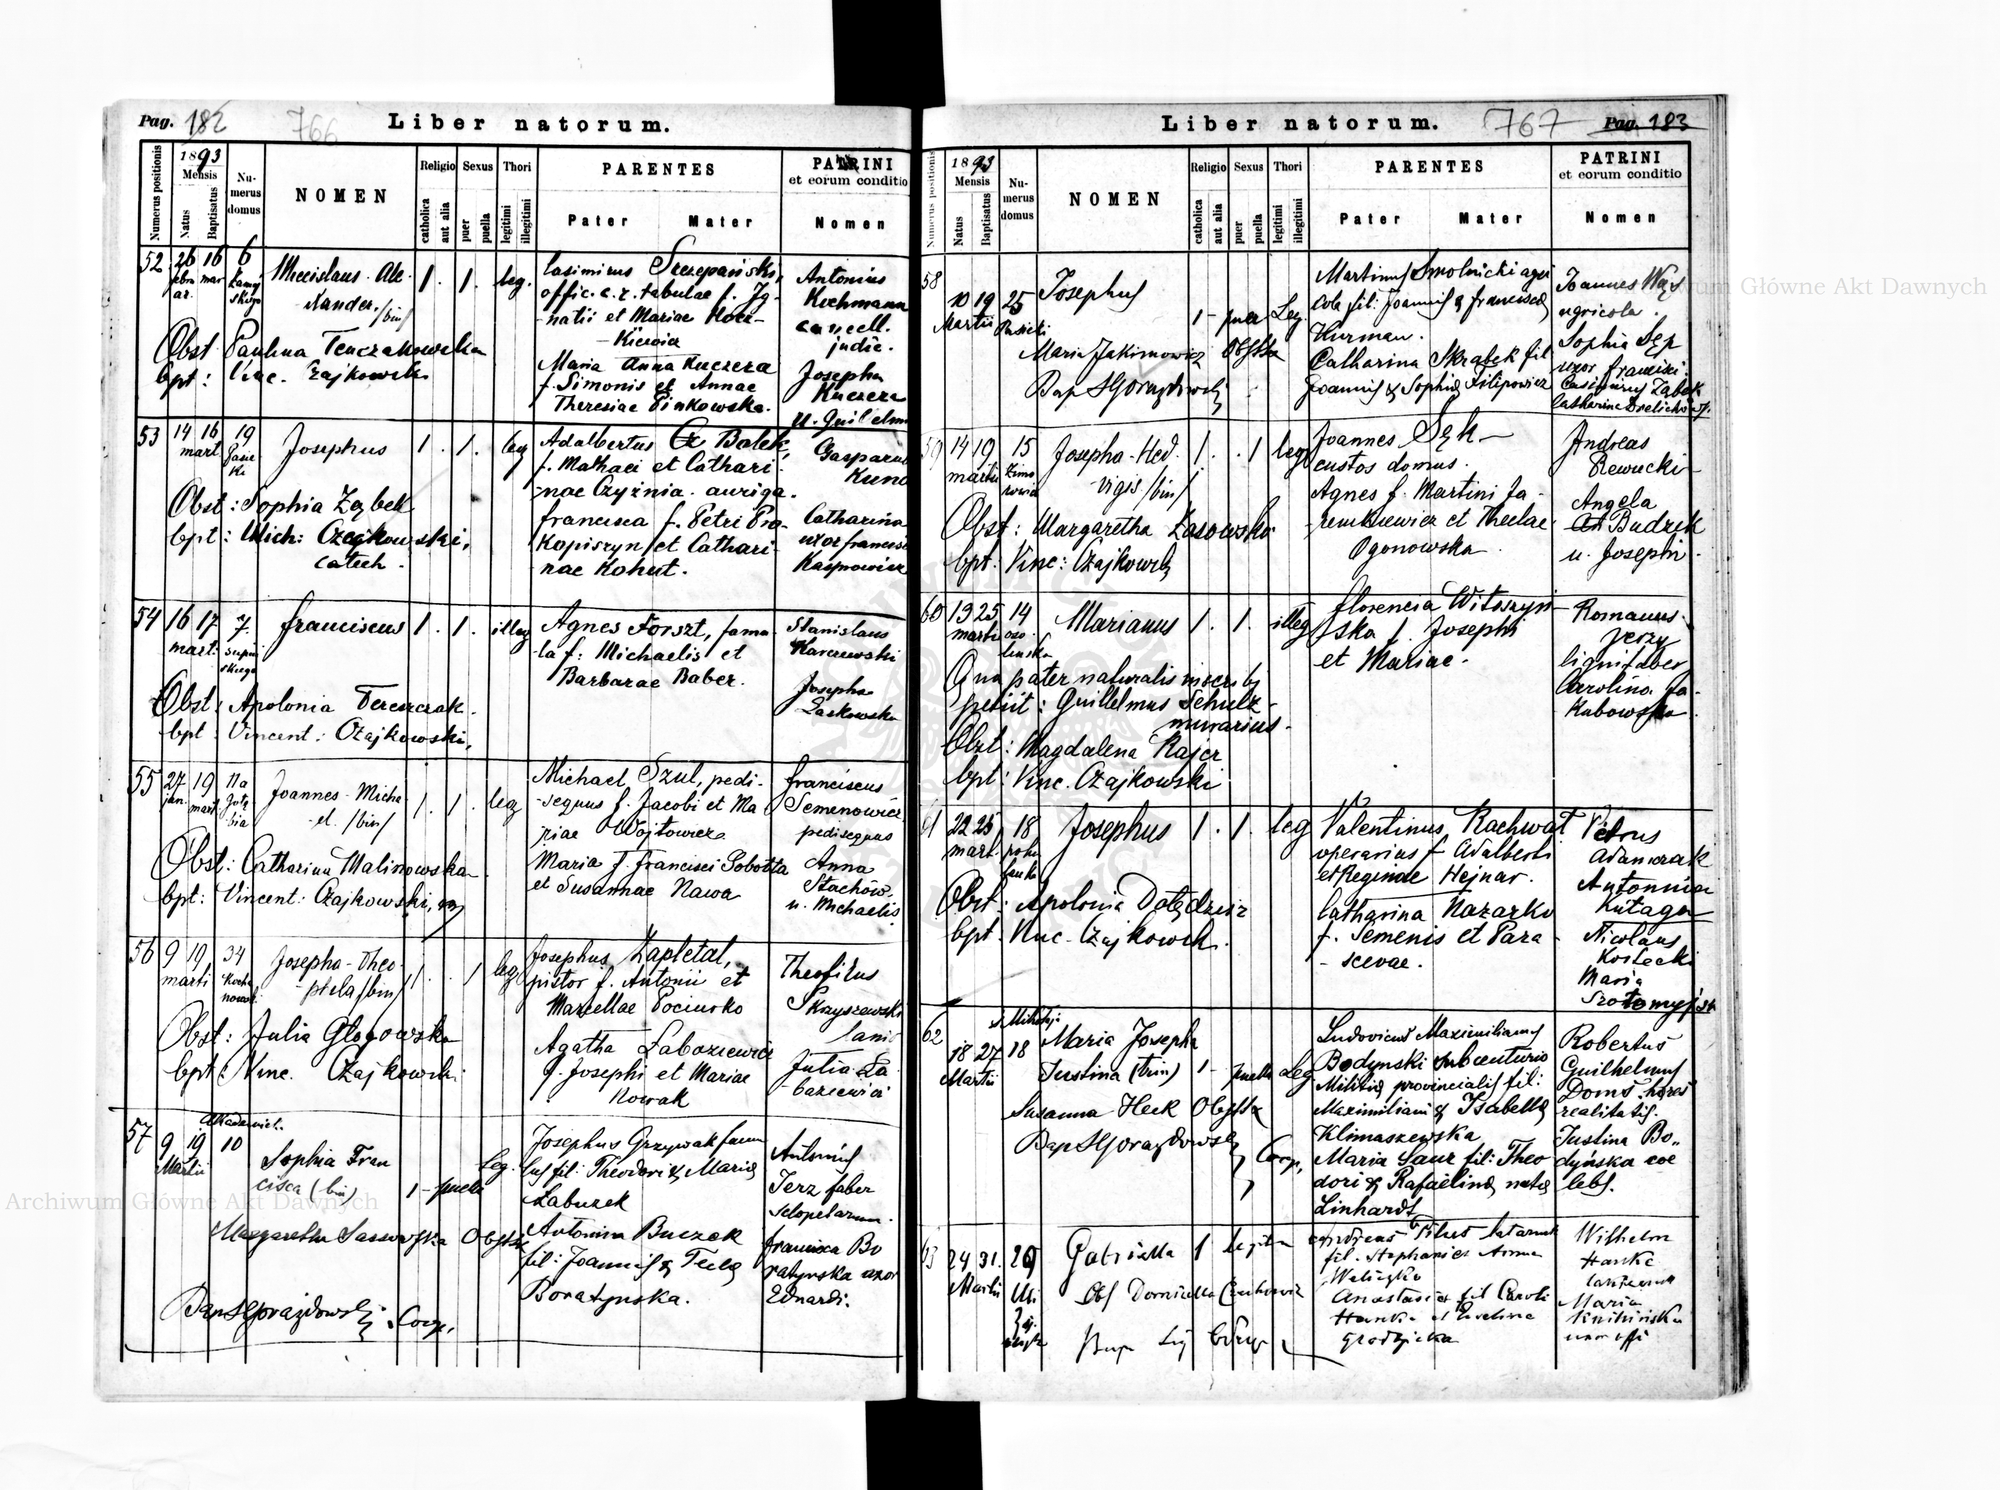 Pag. 182 766 Liber natorum.
Numerus positionis
1893
Mensis
Natus
Baptisatus
Numerus domus
NOMEN
Religio
catholica
aut alia
Sexus
puer
puella
Thori
legitimi
illegitimi
PARENTES
Pater Mater
PATRINI
et eorum conditio
Nomen
52 26 16 6 Miecislaus Ale- 1. 1. leg.
xander /bin/
Obst Paulina Tenczakowska
bpt: Vinc. Czajkowski
Casimirus Szczepański,
offic. c. r. tabulae f. Ig-
natii et Mariae
Maria Anna Kuczera
f. Simonis et Annae
Theresiae Pinkowska.
Antonius
Kochmann
cancell.
judic.
Josepha
Kuczera
u. Guilelmi
53 14 16 19 Josephus 1. 1. leg
mart
Obst: Sophia Ząbek
bpt: Mich: Czajkowski,
catech.
Adalbertus Balek,
f. Mathaei et Cathari-
nae Czyżnia. auriga.
Francisca f. Petri Pro-
kopiszyn et Cathari-
nae Kohut.
Gasparus
Kuno
Catharina
uxor Francisci
Kasprowicz
54 16 17 7. Franciscus 1. 1. illeg
mart.
Obst: Apolonia Tereszczak.
bpt: Vincent: Czajkowski,
Agnes Forszt, famu-
la f: Michaelis et
Barbarae Baber.
Stanislaus
Karczewski
Josepha
Laskowska
55 27 19 Na Joannes-Micha- 1. 1. leg
jan. mart Gołę
bia el. /bin/
Obst: Catharina Malinowska
bpt: Vincent: Czajkowski,
Michael Szul, pedi-
sequus f. Jacobi et Ma-
riae Wojtowicz
Maria f. Francisci Sobotta
et Susannae Nawa
Franciscus
Semenowicz
pedisequus
Anna
Stachów
u. Michaelis
56 9 19 34 Josepha-Theo- 1. 1 leg
marti phila /bin/
Obst: Julia Głogowska
bpt: Vinc. Czajkowski
Josephus Zapletal,
pistor f. Antonii et
Marcellae Pociurko
Agatha Łabaziewicz
f. Josephi et Mariae
Nowak
Theofilus
Skryszewski
lanio
Julia Ła-
baziewicz
57 9 19 10
Martii
Sophia Fran
cisca (bin) 1 - puella leg.
Margaretha Sassowska Obsttx
Bap SGorazdowski Coop.
Josephus Grzywak famu
lus fil: Theodori & Mariæ
Łabuzek
Antonina Buczek
fil: Joannis & Teclæ
Boratynska.
Antonius
Jerz faber
sclopetarum.
Francisca Bo
ratynska uxor
Eduardi.
Liber natorum. 767 Pag. 183
Numerus positionis
1893
Mensis
Natus
Baptisatus
Numerus domus
NOMEN
Religio
catholica
aut alia
Sexus
puer
puella
Thori
legitimi
illegitimi
PARENTES
Pater Mater
PATRINI
et eorum conditio
Nomen
58 10 19 25 Josephus 1 - puer Leg
Martii
Maria Jakimowicz Obsttx
Bap SGorazdowski
Martinus Smolnicki agri
cola fil: Joannis & Franciscæ
Hurman.
Catharina Skrabek fil
Joannis & Sophiæ Filipowicz
Joannes Wąs
agricola.
Sophia Sęp
uxor Francisci.
Casimirus Ząbek
59 14 19 15 Josepha-Hed- 1. 1 leg
martii vigis /bin/
Obst: Margaretha Zasowska
bpt: Vinc: Czajkowski
Joannes Sęk -
custos domus.
Agnes f. Martini Ja-
remkiewicz et Theclae
Ogonowska.
Andreas
Rewucki
Angela
Budzek
u. Josephi
60 19 25 14 Marianus 1. 1. illeg
martii oso-
linska
Qua pater naturalis inscribi
petiit: Guillelmus Schulz
murarius.
Obst: Magdalena Rajer
bpt: Vinc. Czajkowski
Florencia Witoszyń-
ska f. Josephi
et Mariae.
Romanus
Jerzy
lignifaber
Carolina Ja-
kubowska
61 22 25 18 Josephus 1. 1. leg
mart.
Obst: Apolonia Dołędziez
bpt. Vinc. Czajkowski.
Valentinus Rachwał
operarius f. Adalberti
et Reginae Hejnar.
Catharina Nazarko
f. Semenis et Para-
scevae.
Petrus
Adamczak
Antonina
Kutaga
Nicolaus
Kostecki
Maria
62 18 27 18 Maria Josepha
Martii Justina (trin) 1 - puella Leg
Susanna Heck Obsttx
Bap SGorazdowski Coop.
Ludovicus Maximilianus
Bodynski subcenturio
Militiæ provincialis fil:
Maximiliani & Isabellæ
Klimaszewska
Maria Saur fil: Theo
dori & Rafaelinæ natæ
Linhardt
Robertus
Guilhelmus
Doms hæres
realitatis.
Justina Bo„
dyńska coe
lebs.
63 24 31. 29 Gabriella 1 legitu
Martii
Obs Domicella
Bap
fil. Stephani et Anna
Anastasia fil Caroli
Hanke et Evelina
Grodzicka
Wilhelm
Hanke
Maria
Knihińska
Archiwum Główne Akt Dawnych
Archiwum Główne Akt Dawnych